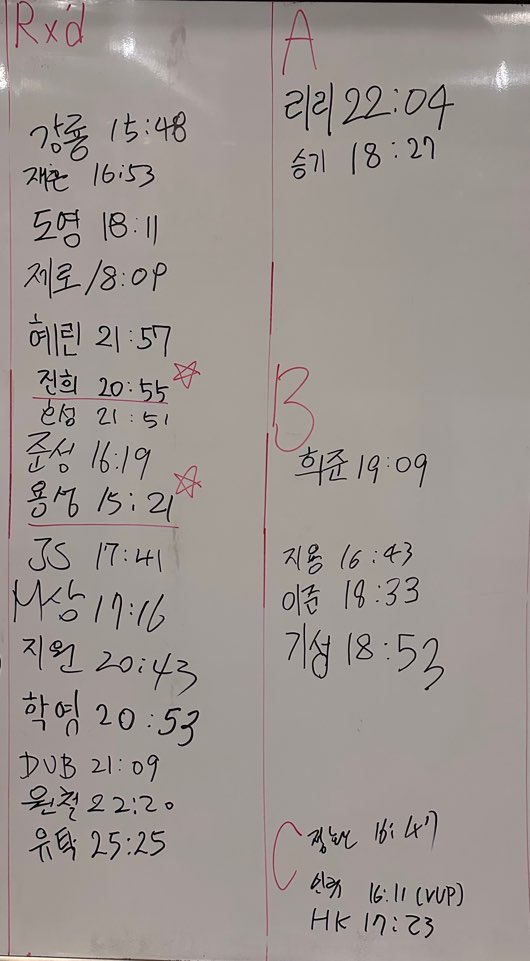 Rx'd
강룡 15:48
재훈 16:53
도영 18:11
제로 18:09
혜린 21:57
진희 20:55
21:51
준성 16:19
용성 15:21
JS 17:41
M상 17:16
지원 20:43
학영 20:53
DUB 21:09
원철 22:20
유탁 25:25
A
리리 22:04
승기 18:27
B
희준 19:09
지용 16:43
이준 18:33
기성 18:53
C
16:47
16:11 (VUP)
HK 17:23